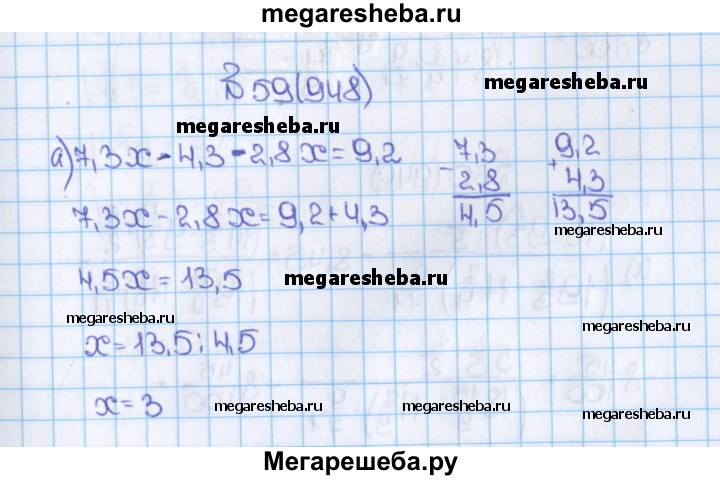 megaresheba.ru
№59(948)
megaresheba.ru
megaresheba.ru
а) 7,3x - 4,3 - 2,8x = 9,2
7,3
- 2,8
4,5
9,2
+ 4,3
13,5
7,3x - 2,8x = 9,2 + 4,3
megaresheba.ru
4,5x = 13,5
megaresheba.ru
megaresheba.ru
megaresheba.ru
x = 13,5 : 4,5
x = 3
megaresheba.ru
megaresheba.ru
megaresheba.ru
Мегарешеба.ру